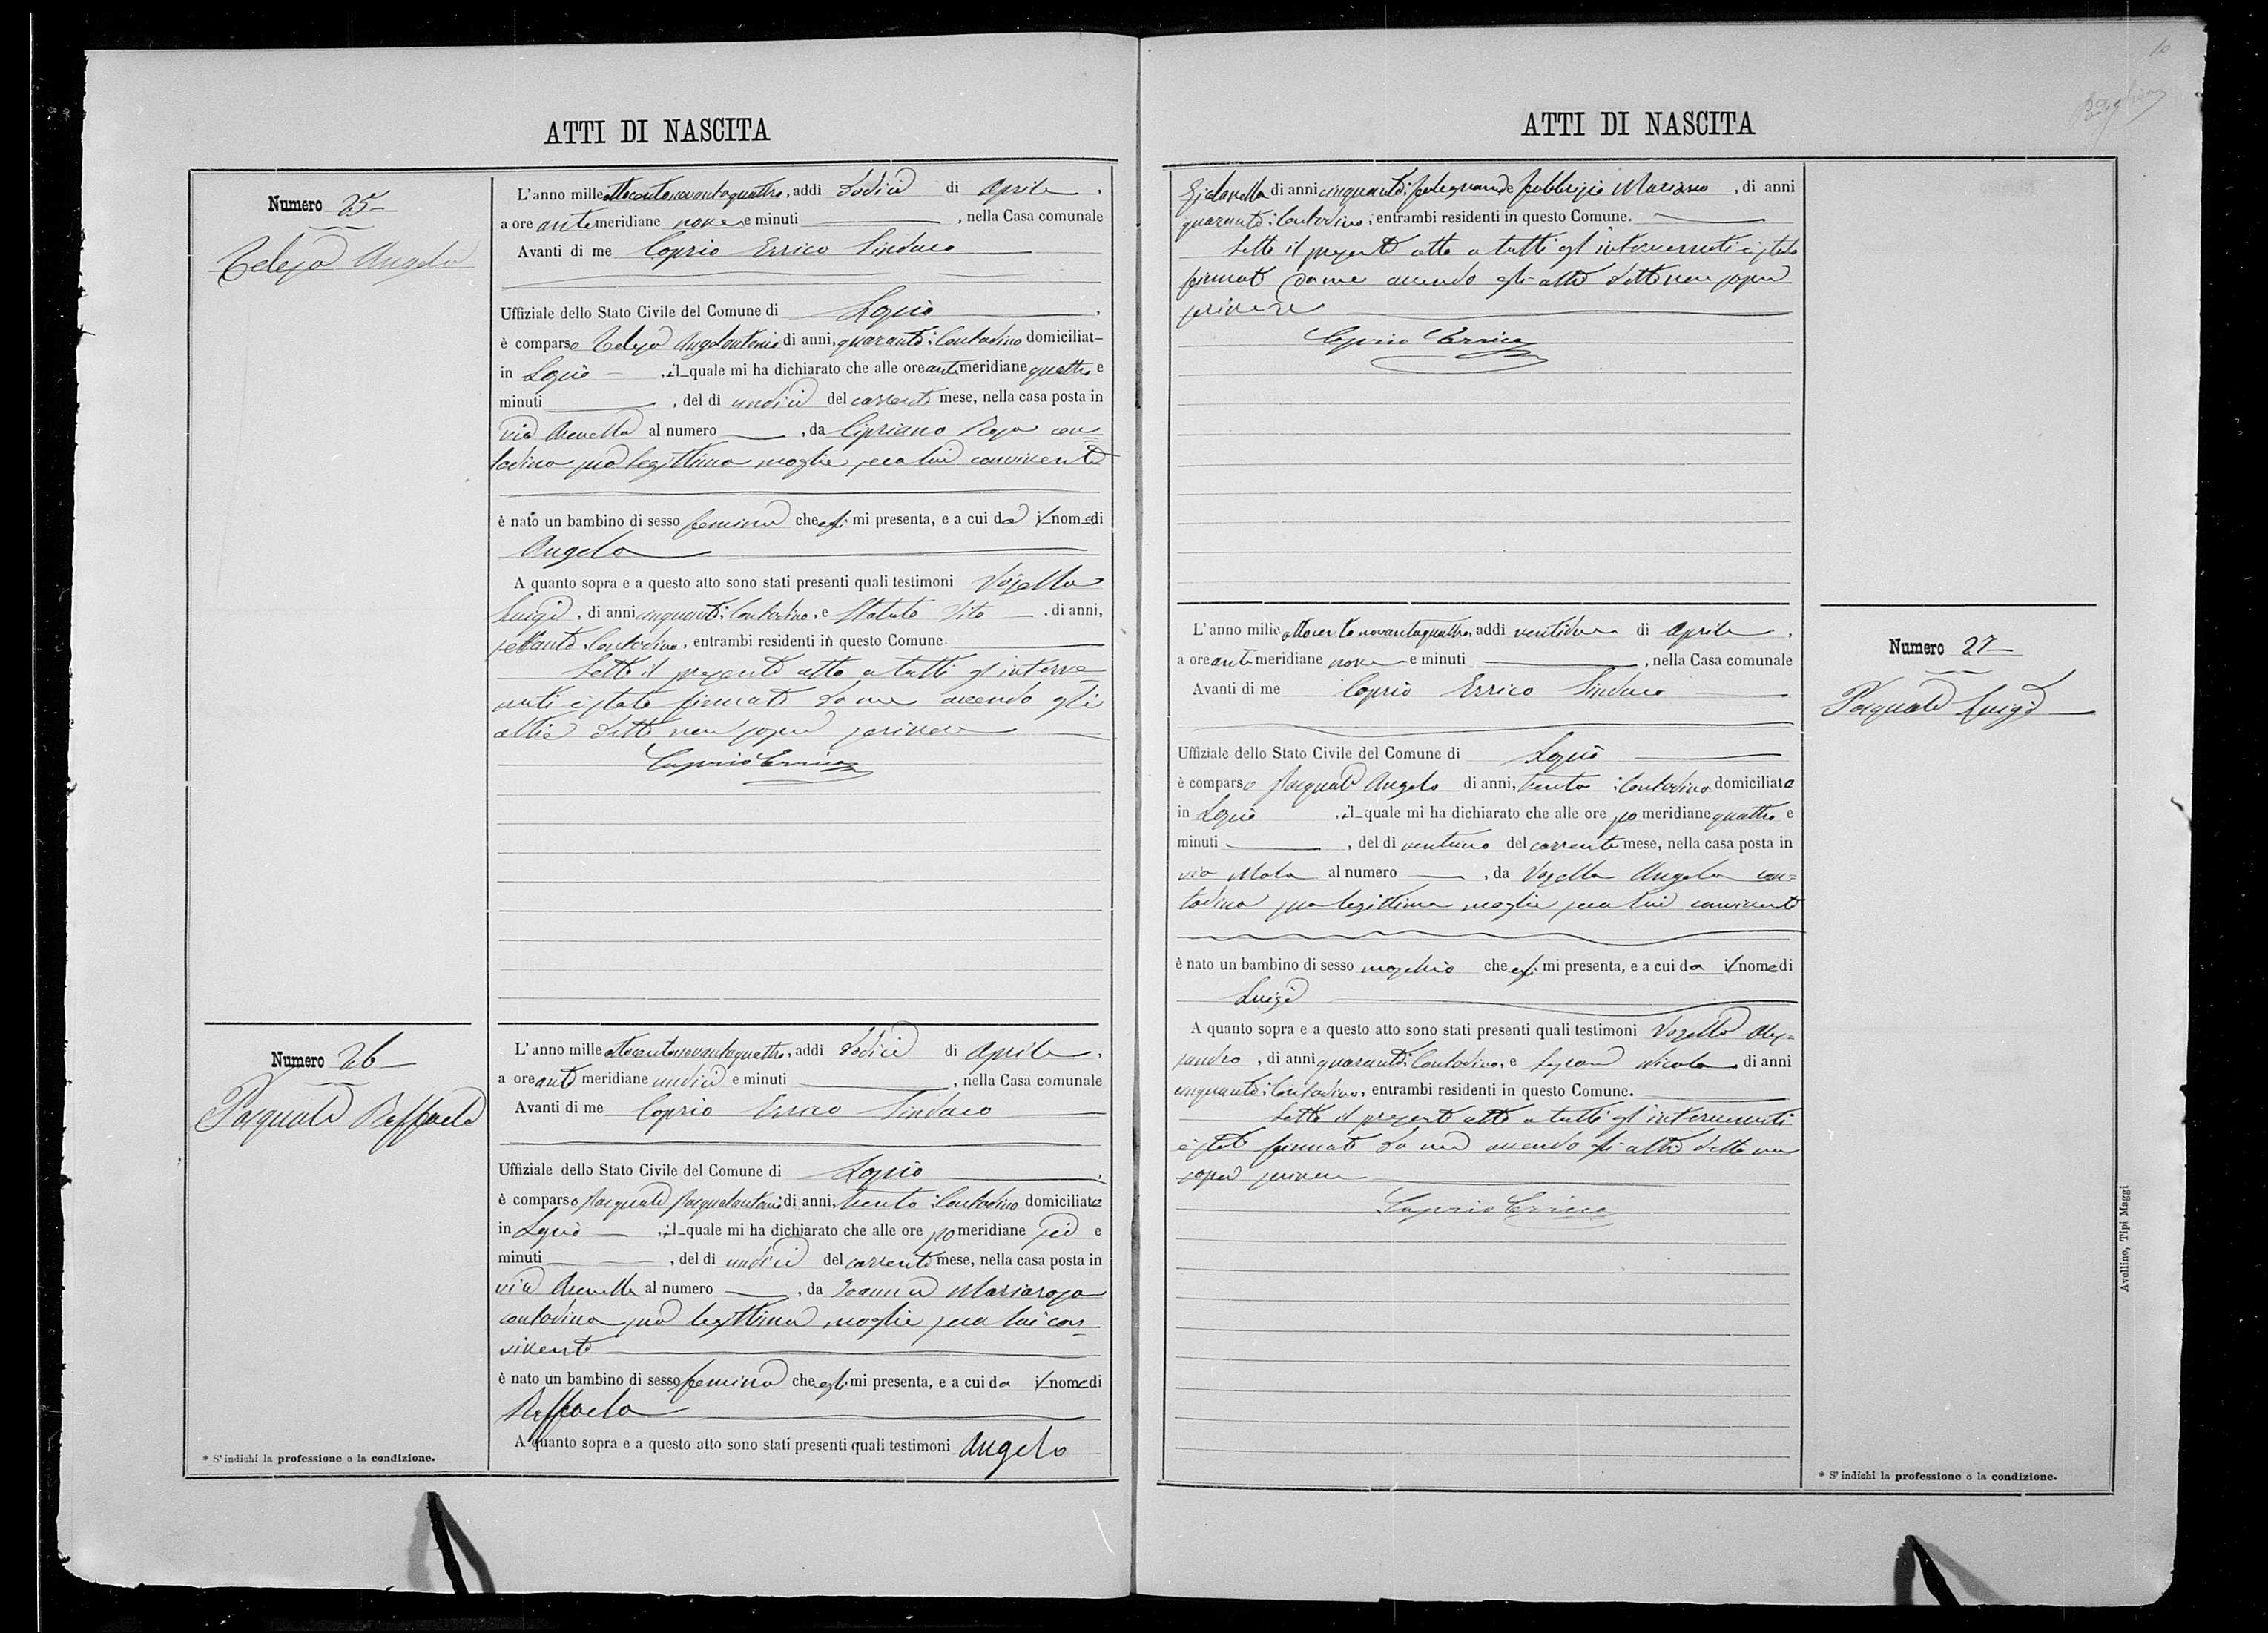 ATTI DI NASCITA
Numero 25
Telesa Angela
L'anno mille ottocentonovantaquattro, addi dodici di Aprile,
a ore antemeridiane nove e minuti , nella Casa comunale
Avanti di me Caprio Errico Sindaco
Uffiziale dello Stato Civile del Comune di Lapio,
è comparso Telesa Angelantonio di anni, quaranta; Contadino domiciliat-
in Lapio , il quale mi ha dichiarato che alle ore antemeridiane quattro e
minuti , del dì undici del corrente mese, nella casa posta in
via Arenella al numero , da Cipriano Rosa con=
tadina sua legittima moglie seco lui convivente
è nato un bambino di sesso femina che egli mi presenta, e a cui da il nome di
Angela
A quanto sopra e a questo atto sono stati presenti quali testimoni Vozella
Luigi, di anni cinquanta; Contadino, e Statuto Vito , di anni,
settanta, Contadino, entrambi residenti in questo Comune.
Letto il presente atto a tutti gl'interve=
nuti è stato firmato da me avendo gli
altri detto non saper scrivere
Caprio Errico
Numero 26
Pasquale Raffaela
L'anno mille ottocentonovantaquattro, addi dodici di Aprile,
a ore antemeridiane undici e minuti , nella Casa comunale
Avanti di me Caprio Errico Sindaco
Uffiziale dello Stato Civile del Comune di Lapio
è comparso Pasquale Pasqualantonio di anni, trenta; Contadino domiciliato
in Lapio , il quale mi ha dichiarato che alle ore pomeridiane sei e
minuti , del dì undici del corrente mese, nella casa posta in
via Arenella al numero , da Ioanna Mariarosa
contadina sua legittima moglie seco lui con=
vivente
è nato un bambino di sesso femina che egli mi presenta, e a cui da il nome di
Raffaela
A quanto sopra e a questo atto sono stati presenti quali testimoni Angelo
* S'indichi la professione o la condizione.
10
ATTI DI NASCITA
di anni cinquanta; falegname e Fabbrizio Mariano, di anni
quaranta; Contadino; entrambi residenti in questo Comune.
Letto il presente atto a tutti gl'intervenuti è stato
firmato da me avendo gli altri detto non saper
scrivere
Caprio Errico
Numero 27
Pasquale Luigi
L'anno mille ottocentonovantaquattro, addi ventidue di Aprile,
a ore antemeridiane nove e minuti , nella Casa comunale
Avanti di me Caprio Errico Sindaco
Uffiziale dello Stato Civile del Comune di Lapio
è comparso Pasquale Angelo di anni, trenta; Contadino domiciliato
in Lapio , il quale mi ha dichiarato che alle ore pomeridiane quattro e
minuti , del dì ventuno del corrente mese, nella casa posta in
via Mola al numero , da Vozella Angela con=
tadina sua legittima moglie seco lui convivente
è nato un bambino di sesso maschio che egli mi presenta, e a cui da il nome di
Luigi
A quanto sopra e a questo atto sono stati presenti quali testimoni Vozella Ales=
sandro, di anni quaranta; Contadino, e Nicola di anni
cinquanta; Contadino, entrambi residenti in questo Comune.
Letto il presente atto a tutti gl'intervenuti
è stato firmato da me avendo gli altri detto non
saper scrivere
Caprio Errico
* S'indichi la professione o la condizione.
Avellino, Tipi Maggi